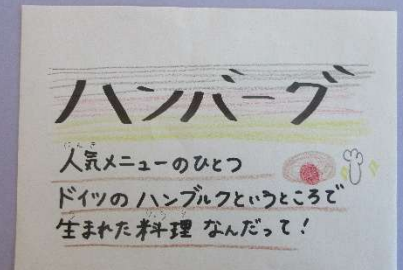 ハンバーグ
人気メニューのひとつ
ドイツの ハンブルクというところで
生まれた 料理 なんだって!